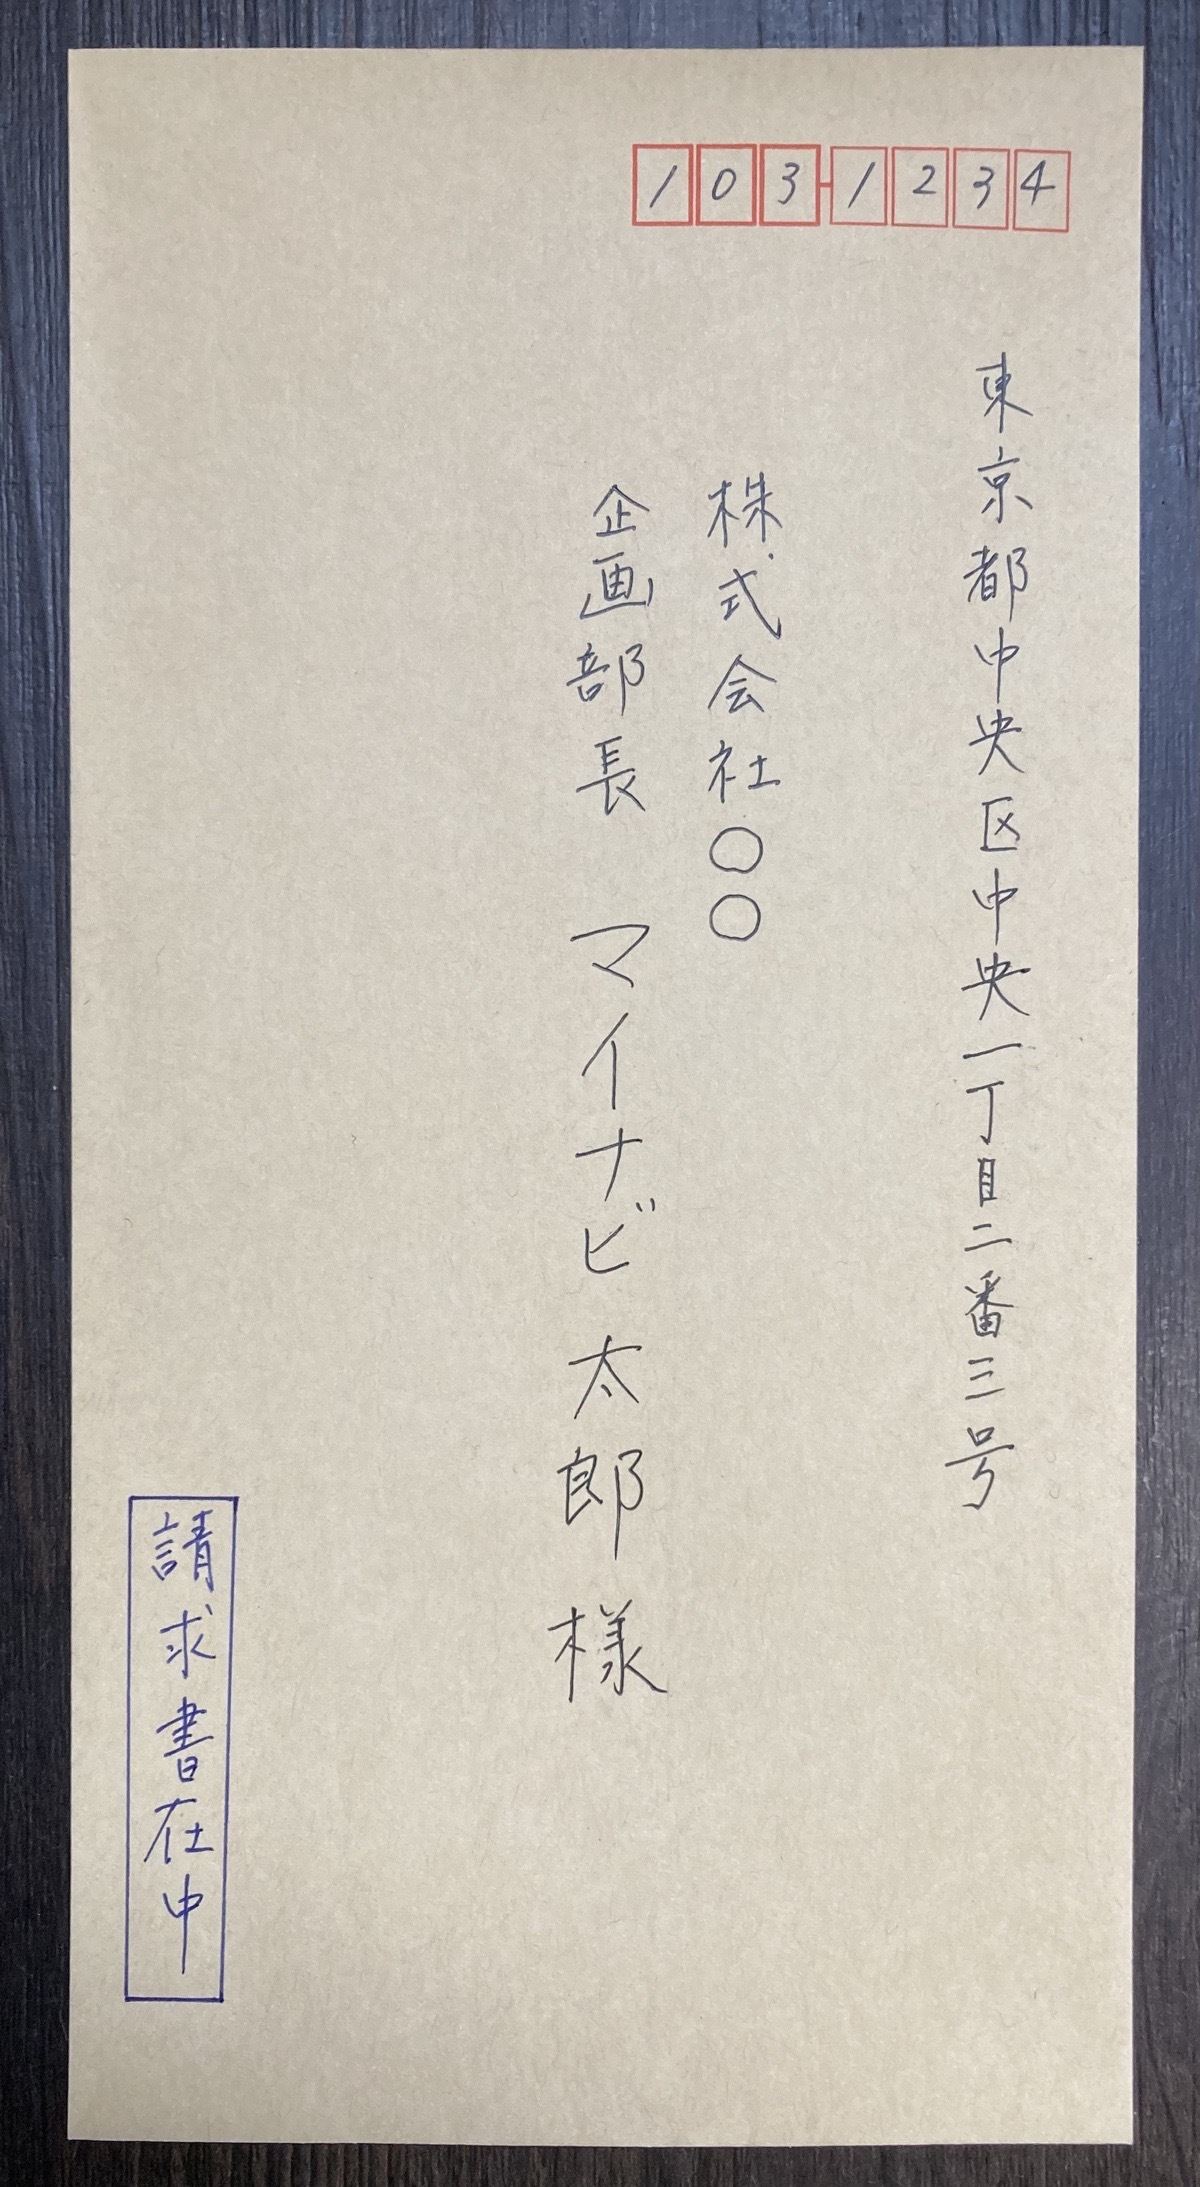 103-1234
東京都中央区中央一丁目二番三号
株式会社〇〇
企画部長 マイナビ太郎様
請求書在中